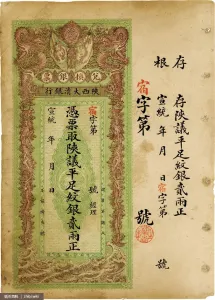 存根
存陝議平足紋銀貳兩正
宣統 年 月 日宿字第 號
宿字第 號
兌換銀票
陝西大清銀行
宿字第 號 經理
憑票取陝議平足紋銀貳兩正
宣統 年 月 日